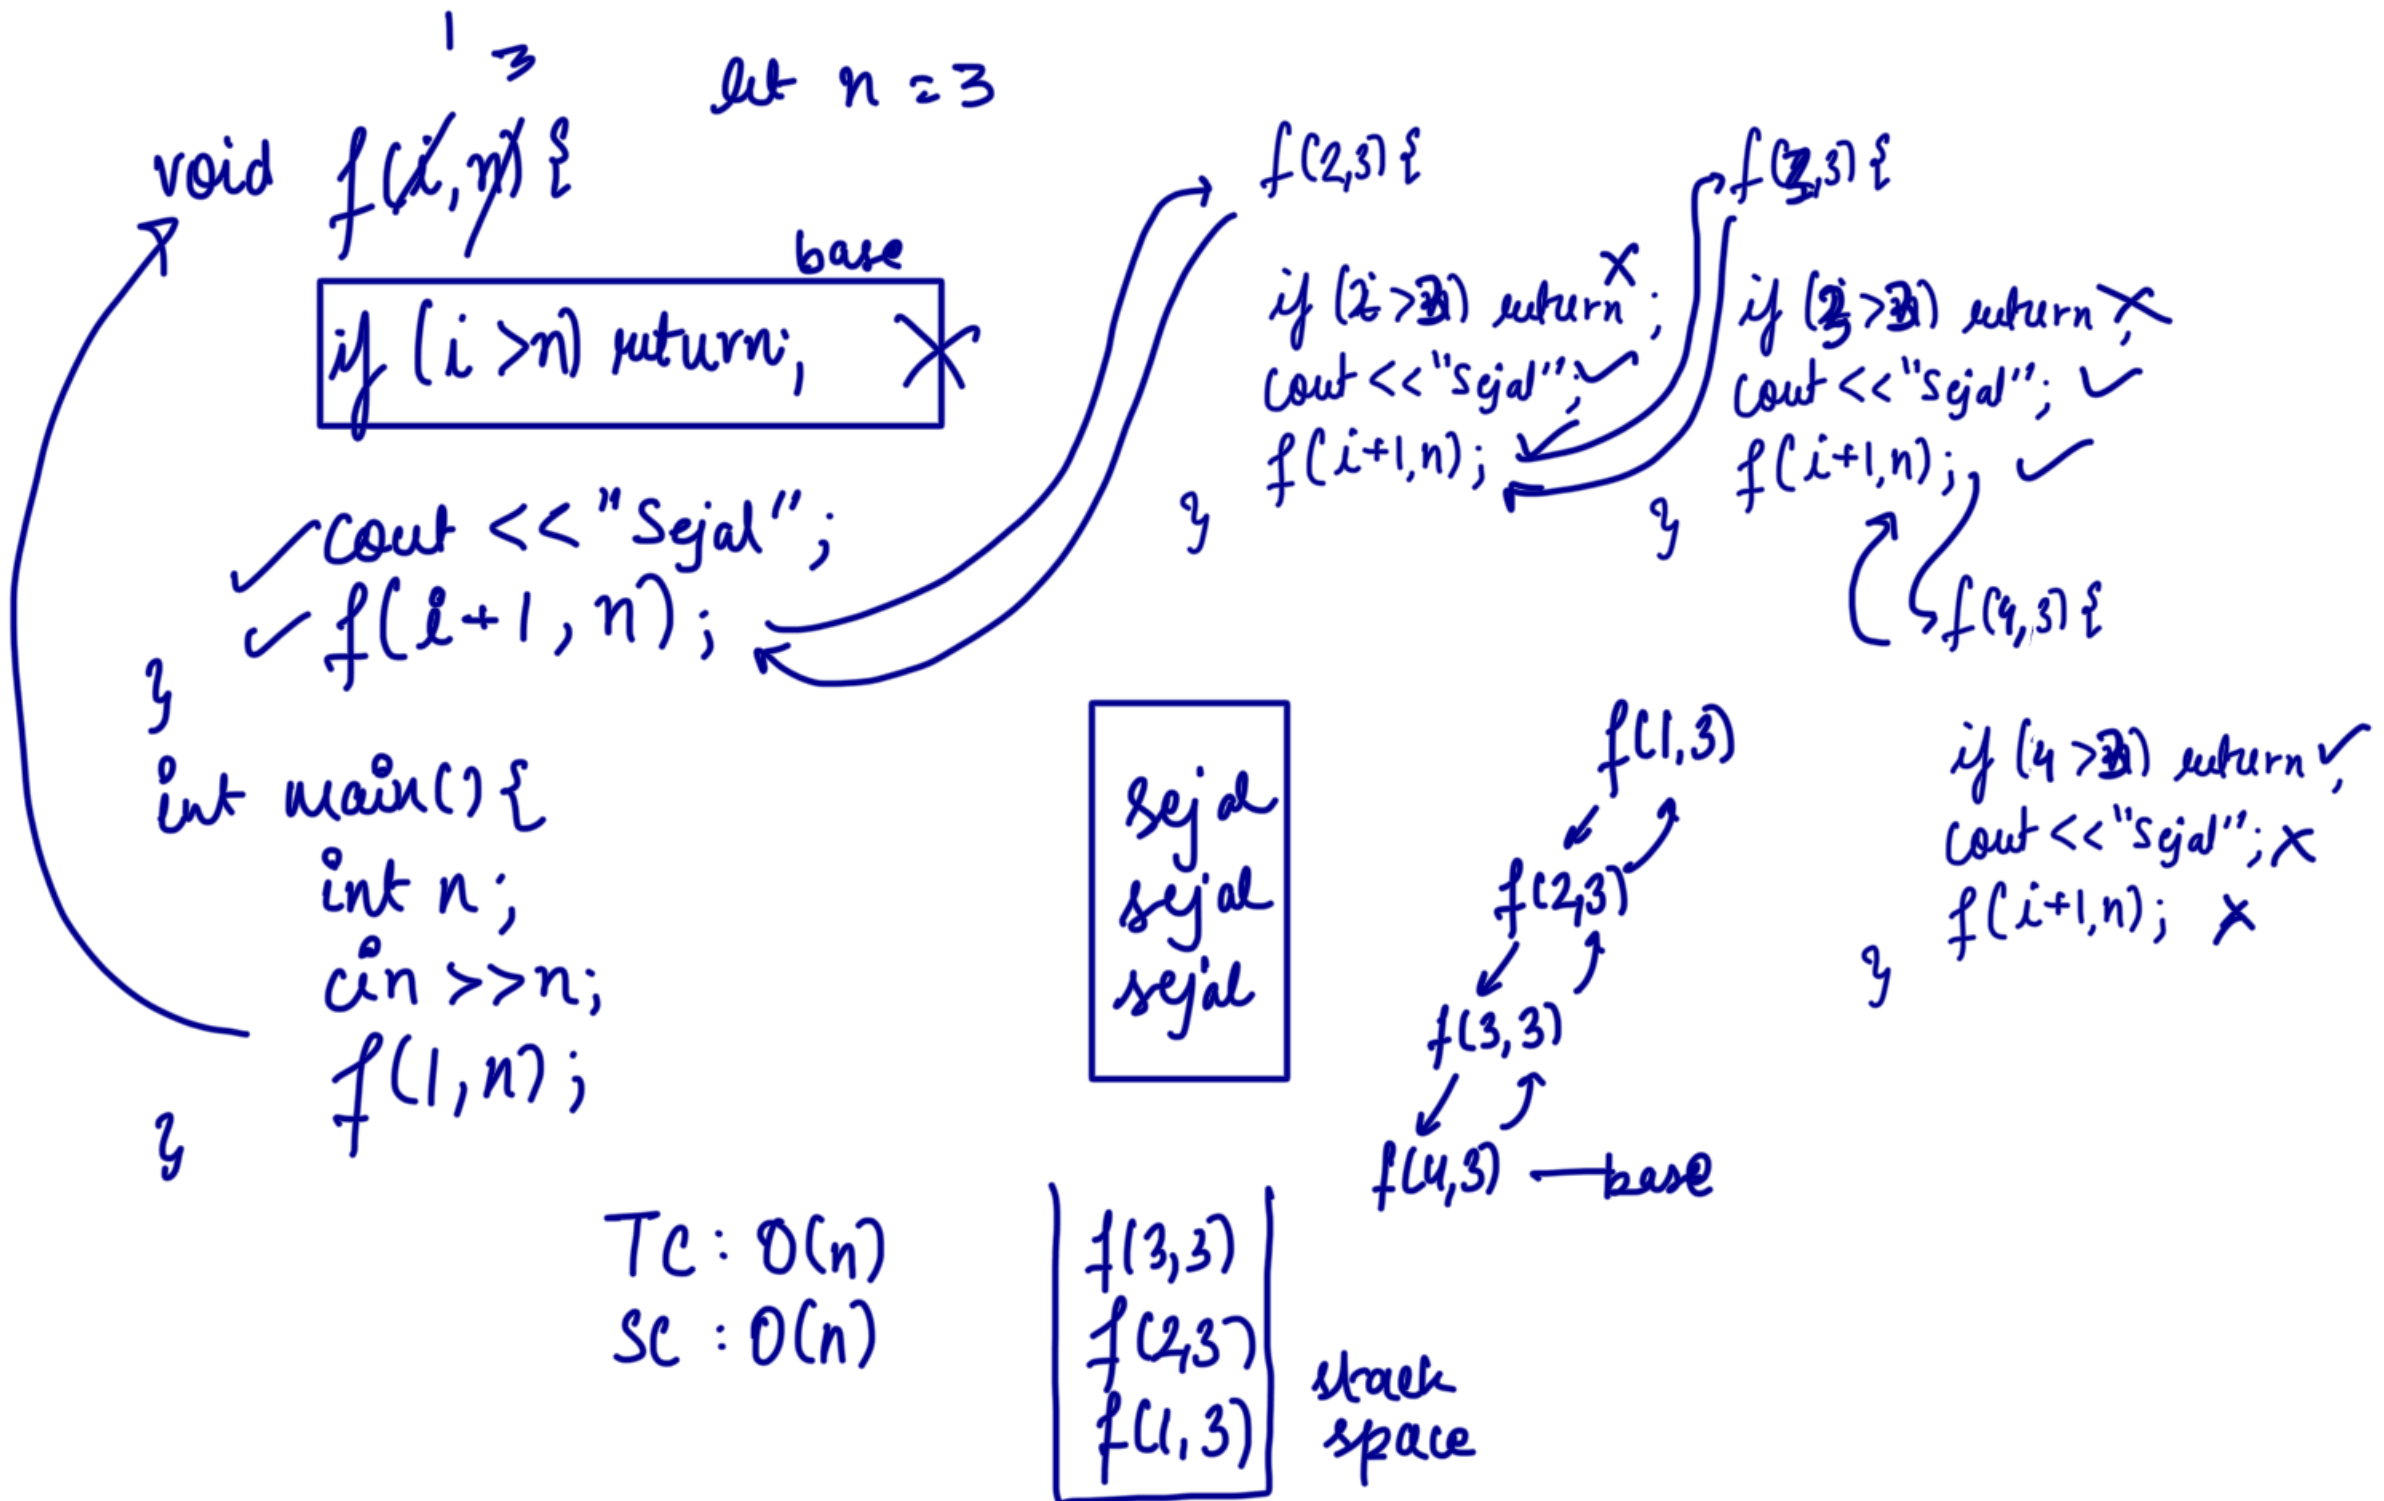 1 3
let n = 3
void f(i,n){
base
if (i >n) return;
cout << "Sejal";
f(i+1, n);
}
int main(){
int n;
cin >>n;
f(1,n);
}
f(2,3){
if (2 >3) return;
cout <<"Sejal";
f(i+1,n);
}
f(3,3){
if (3 >3) return;
cout <<"Sejal";
f(i+1,n);
}
f(4,3){
if (4 >3) return;
cout <<"Sejal";
f(i+1,n);
}
sejal
sejal
sejal
f(1,3)
f(2,3)
f(3,3)
f(4,3) — base
TC : O(n)
SC : O(n)
f(3,3)
f(2,3)
f(1,3)
stack
space